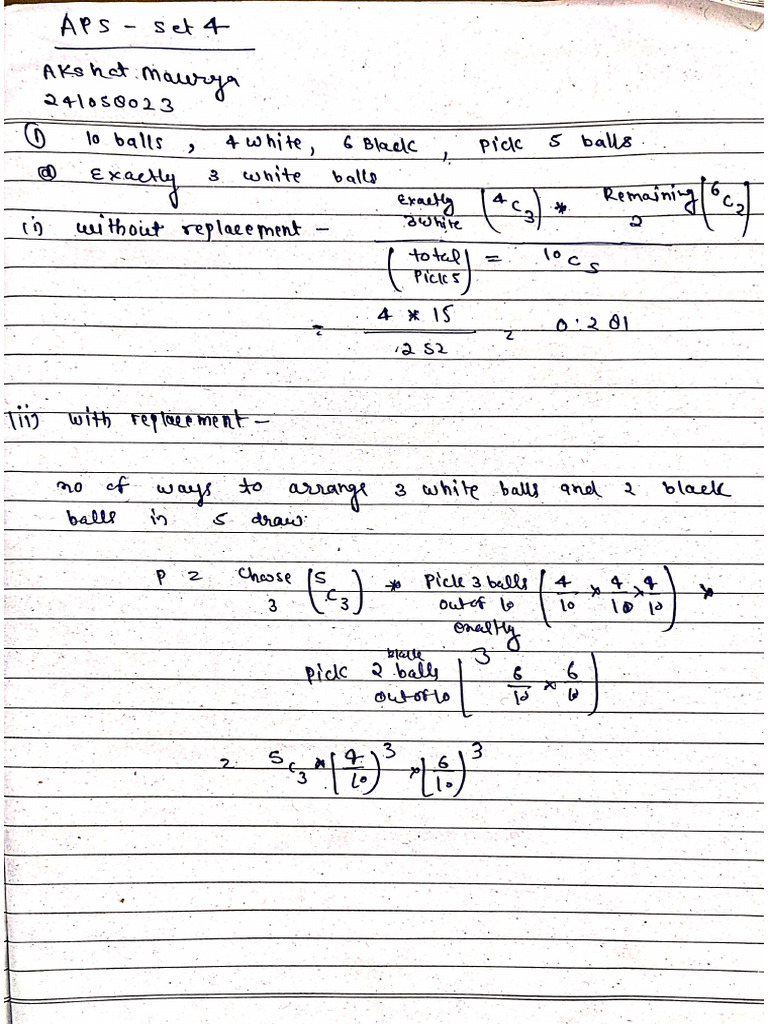 APS - Set 4
Akshat Maurya
241050023
① 10 balls , 4 white, 6 Black , pick 5 balls.
ⓐ Exactly 3 white balls
(i) without replacement - Exactly 3 white (⁴C₃) * Remaining 2 (⁶C₂)
(total pick 5) = ¹⁰C₅
= 4 * 15 / 252 = 0.201
(ii) with replacement -
no of ways to arrange 3 white balls and 2 black
balls in 5 draw.
P = Choose 3 (⁵C₃) * Pick 3 balls out of 10 exactly (4/10 × 4/10 × 4/10) *
Pick 2 black balls out of 10 ( 3 6/10 × 6/10 )
= ⁵C₃ * (4/10)³ * (6/10)³